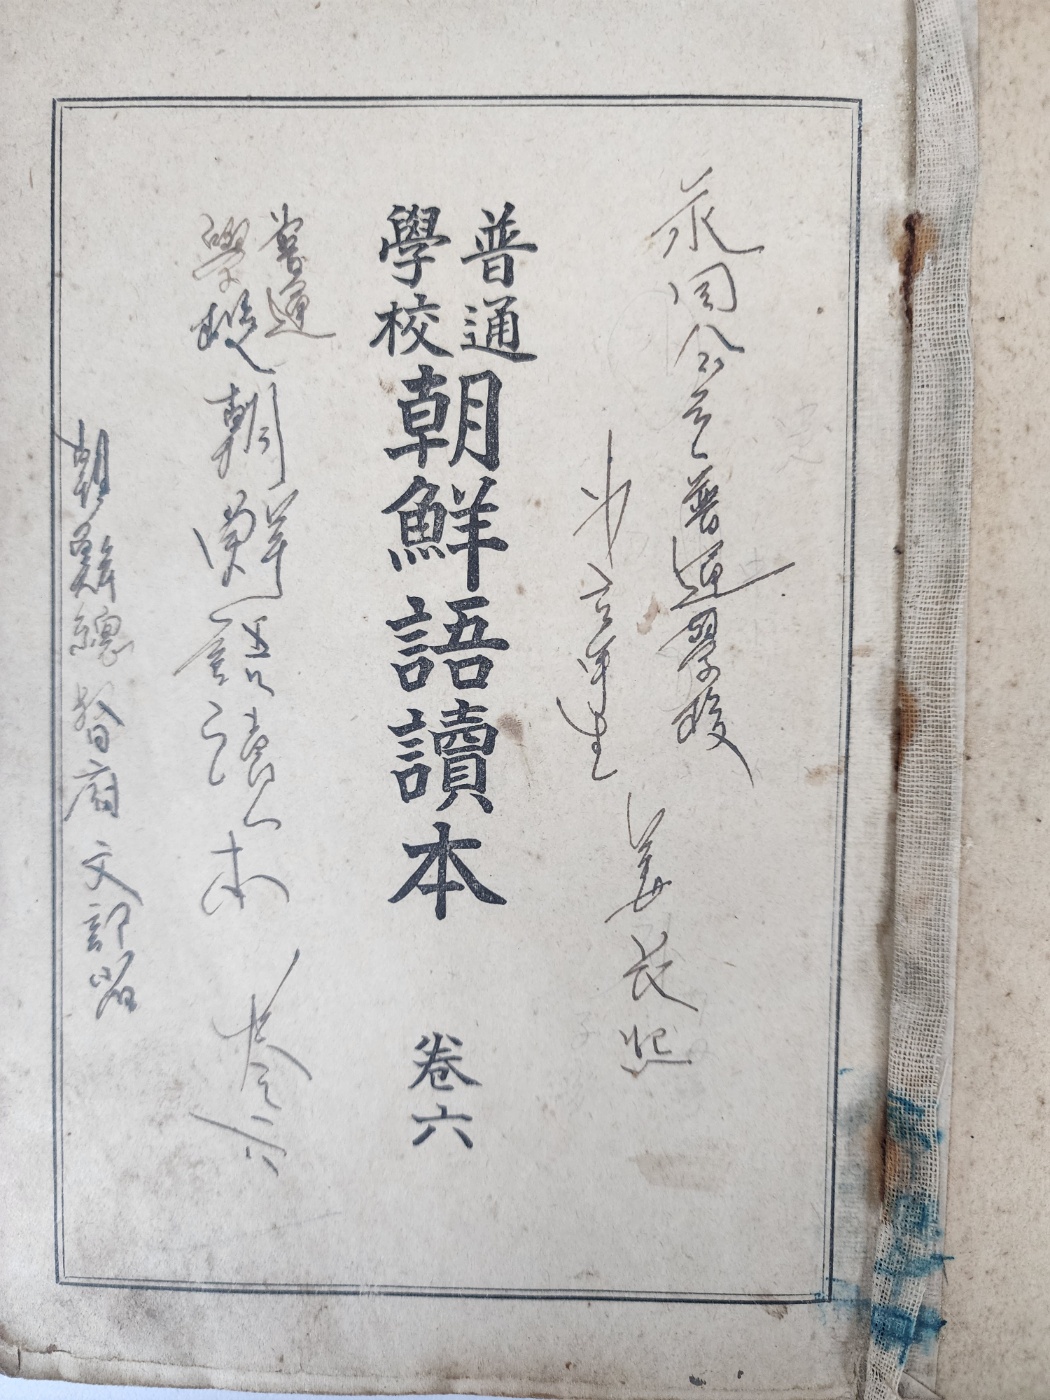 永同公立普通學校
年生
姜
普通
學校
朝鮮語讀本
卷六
普通
學校
朝鮮語讀本 卷六
朝鮮總督府文部省